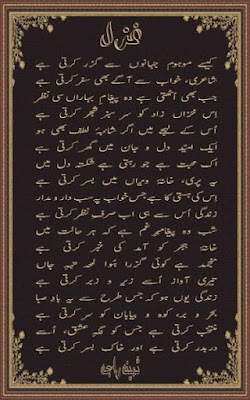 غزل
کیسے موہوم جہانوں سے گزر کرتی ہے
شاعری، خواب سے آگے بھی سفر کرتی ہے
جب بھی آتی ہے وہ پیغامِ بہاراں سی نظر
اس خزاں زاد کو سر سبز شجر کرتی ہے
اُس کے لہجے میں اگر شائبۂ لطف بھی ہو
ایک امید دل و جان میں گھر کرتی ہے
اک محبت ہے جو رہتی ہے شکستہ دل میں
یہ پری، خانۂ ویراں میں بسر کرتی ہے
اس کی بستی کا ہے جس خواب پہ سب دار و مدار
زندگی اُس سے ہی اب صرفِ نظر کرتی ہے
شب وہ پیغامبرِ غم ہے کہ ہر حالت میں
خانۂ ہجر کو آمد کی خبر کرتی ہے
منجمد ہے کوئی گزرا ہوا لمحہ جہاں
تیری آواز اُسے زیر و زبر کرتی ہے
زندگی یوں ہو کہ جس طرح سے یہ بادِ صبا
بحر و بر، کوہ و بیابان کو سر کرتی ہے
منتخب کرتی ہے جس کو نگہِ عشق، اُسے
در بدر کرتی ہے اور خاک بسر کرتی ہے
ثمینہ راجہ